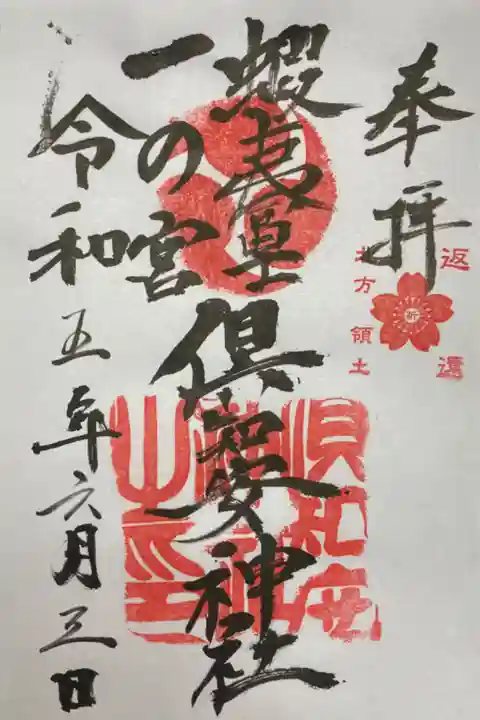 奉拝
返還
祈
北方領土
蝦夷富士
一の宮
倶知安神社
倶知安
神社
之印
令和五年六月三日